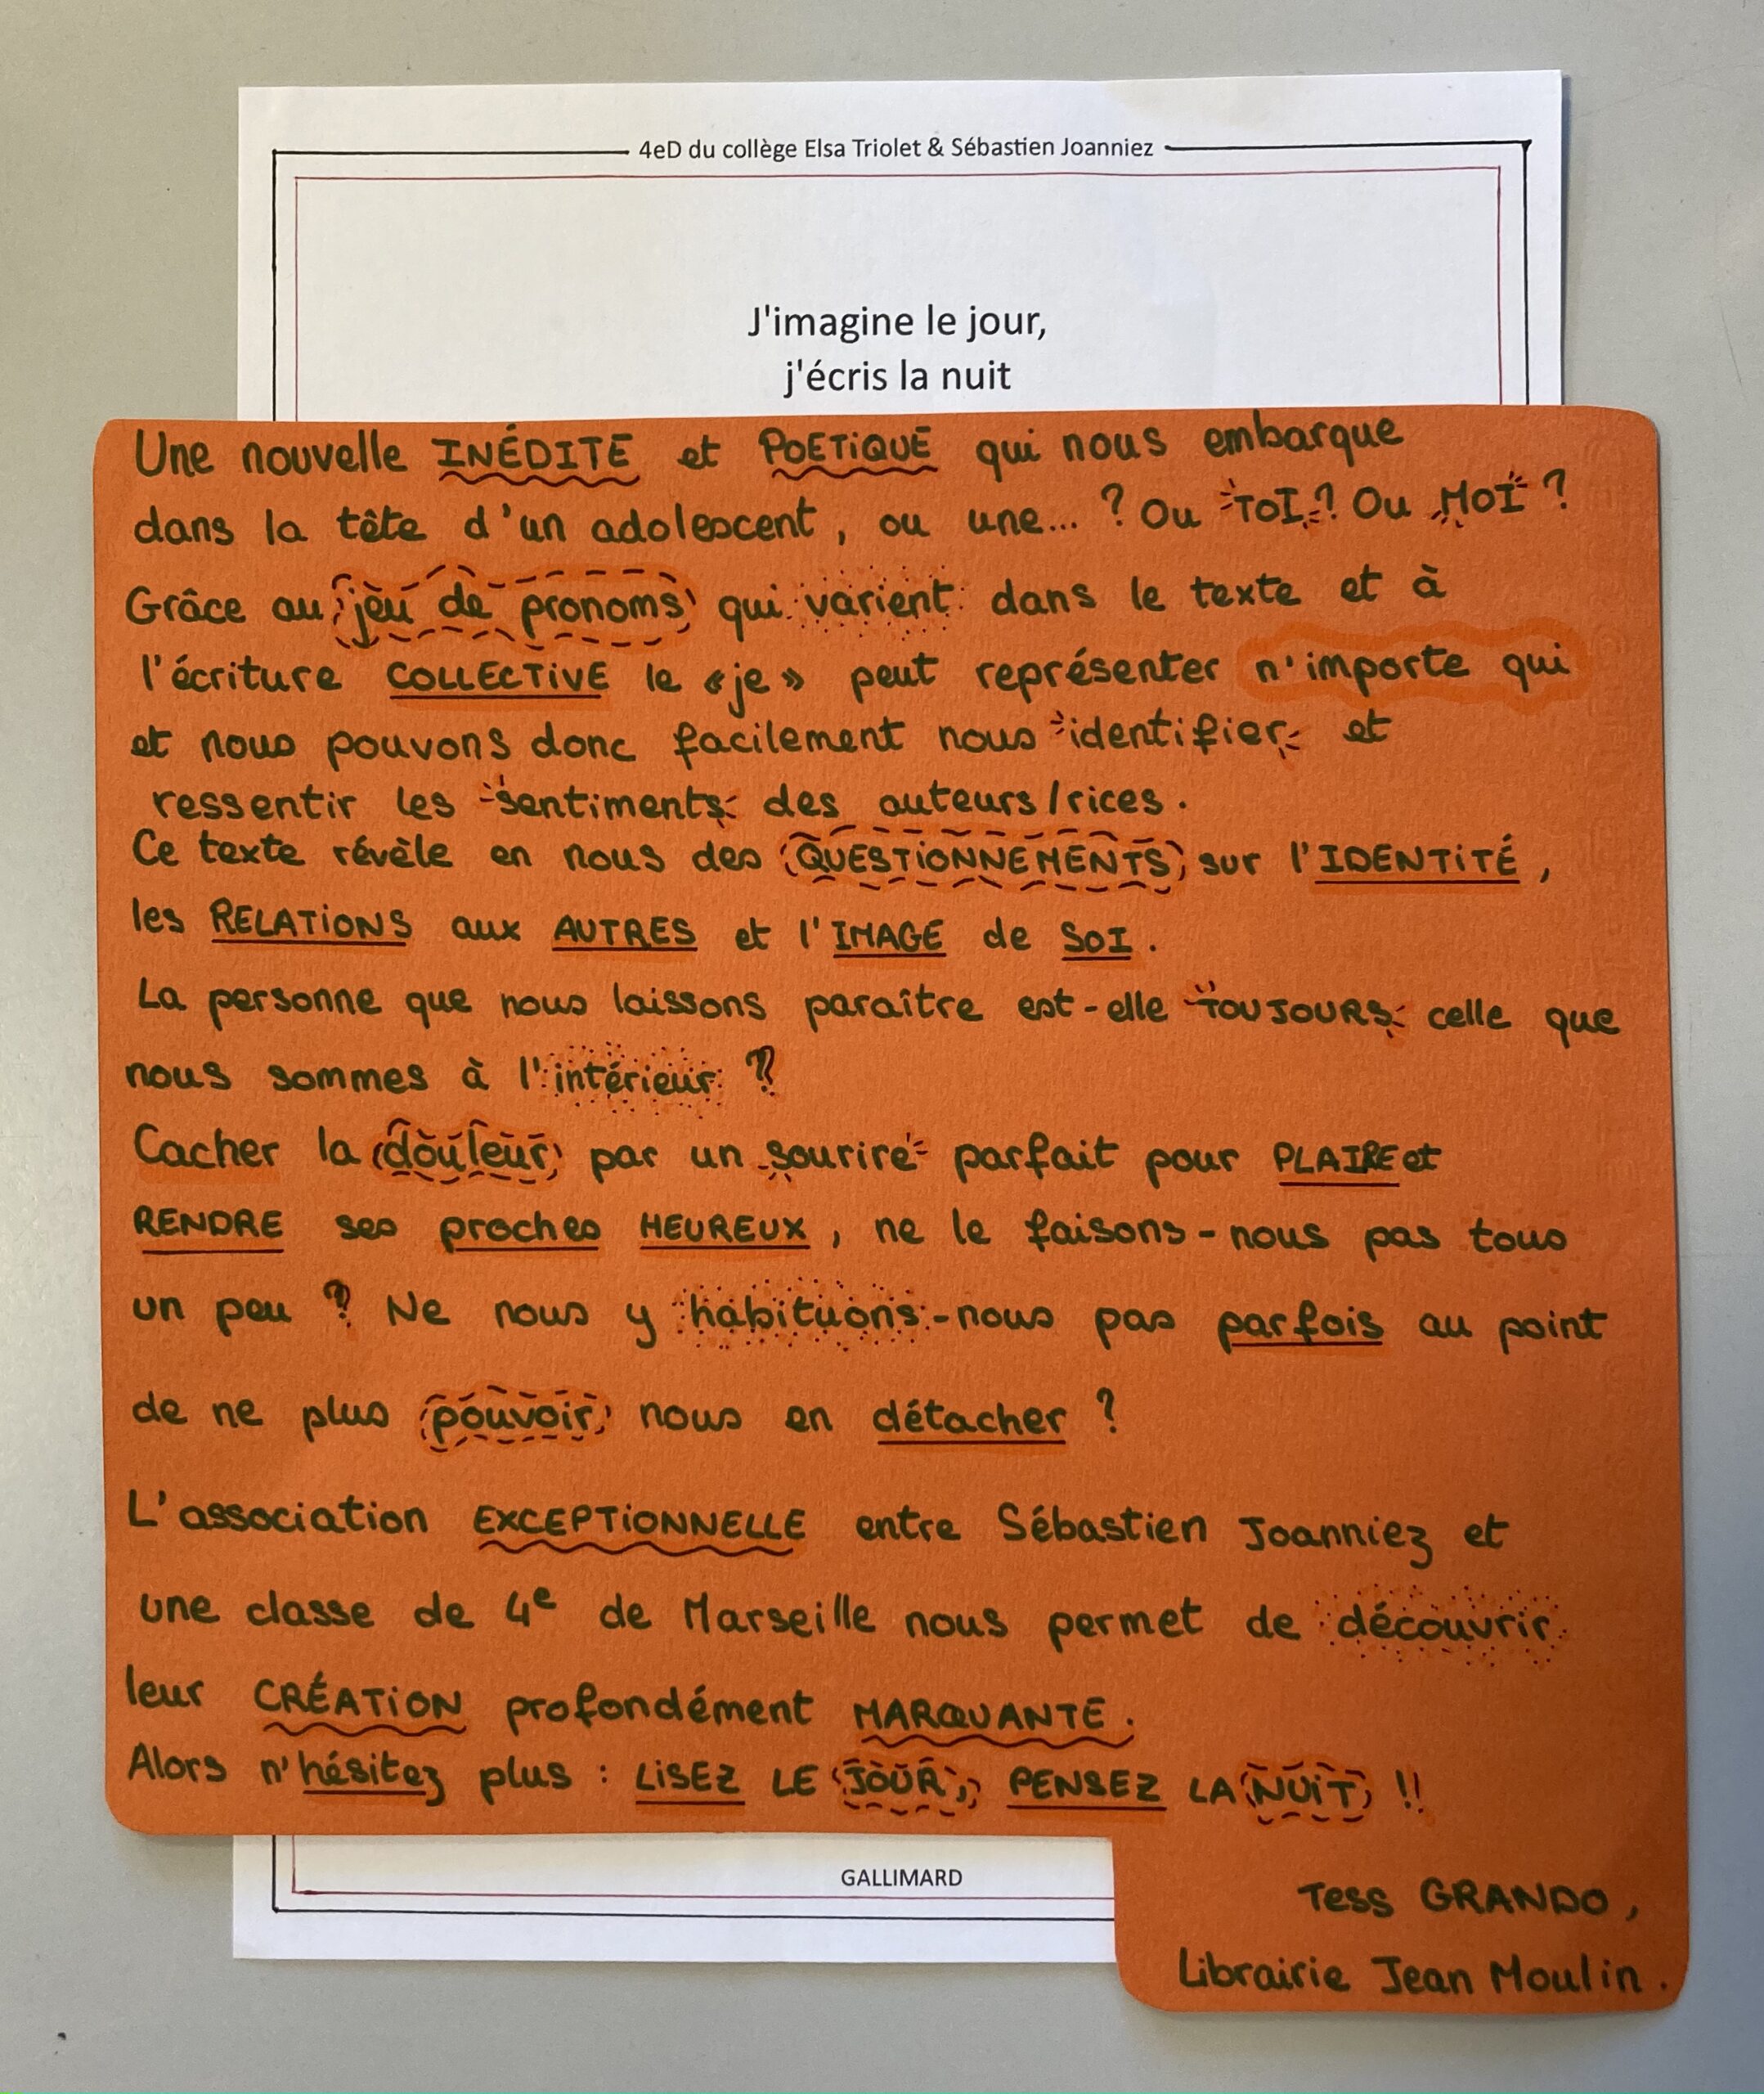 4eD du collège Elsa Triolet & Sébastien Joanniez
J'imagine le jour,
j'écris la nuit
Une nouvelle INÉDITE et POETIQUE qui nous embarque
dans la tête d'un adolescent, ou une... ? Ou TOI ? Ou MOI ?
Grâce au jeu de pronoms qui varient dans le texte et à
l'écriture COLLECTIVE le «je» peut représenter n'importe qui
et nous pouvons donc facilement nous identifier et
ressentir les sentiments des auteurs/rices.
Ce texte révèle en nous des QUESTIONNEMENTS sur l'IDENTITÉ,
les RELATIONS aux AUTRES et l'IMAGE de SOI.
La personne que nous laissons paraître est-elle TOUJOURS celle que
nous sommes à l'intérieur ?
Cacher la douleur par un sourire parfait pour PLAIRE et
RENDRE ses proches HEUREUX, ne le faisons-nous pas tous
un peu ? Ne nous y habituons-nous pas parfois au point
de ne plus pouvoir nous en détacher ?
L'association EXCEPTIONNELLE entre Sébastien Joanniez et
une classe de 4e de Marseille nous permet de découvrir
leur CRÉATION profondément MARQUANTE.
Alors n'hésitez plus : LISEZ LE JOUR, PENSEZ LA NUIT !!
GALLIMARD
Tess GRANDO,
Librairie Jean Moulin.